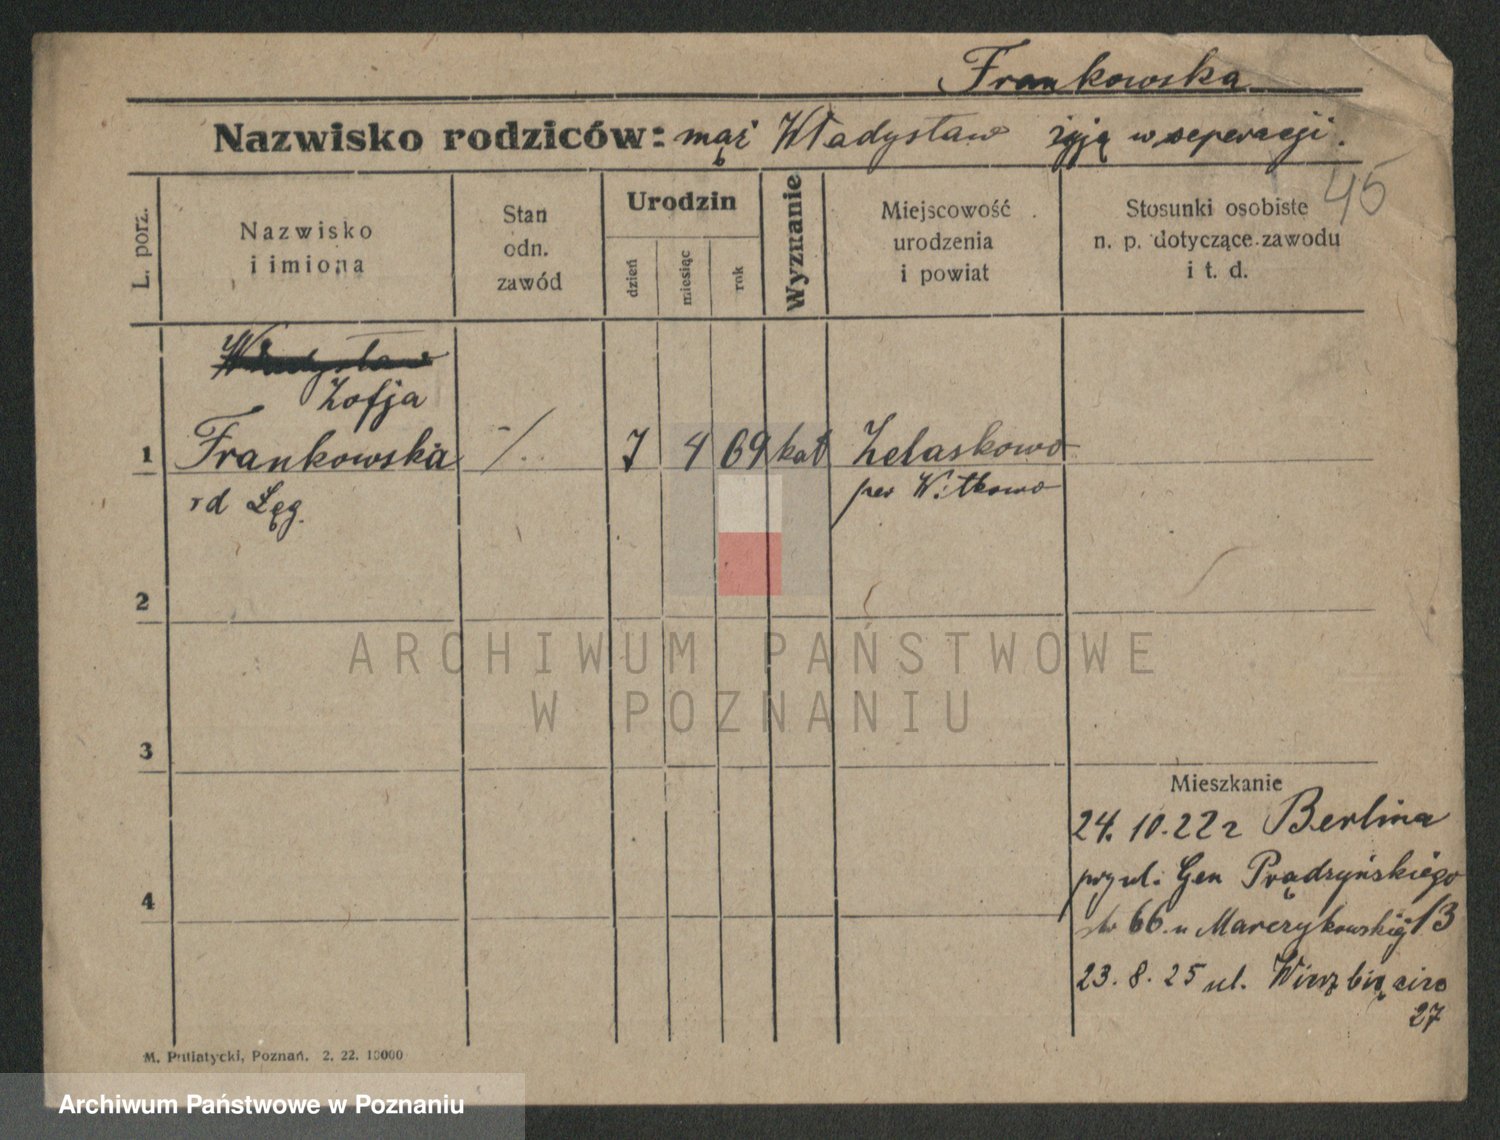 Frankowska
Nazwisko rodziców: mąż Władysław żyją w seperacji.
45
L. porz.
Nazwisko
i imiona
Stan
odn.
zawód
Urodzin
dzień
miesiąc
rok
Wyznanie
Miejscowość
urodzenia
i powiat
Stosunki osobiste
n. p. dotyczące zawodu
i t. d.
Władysław
Zofja
1 Frankowska -/.. 7 4 69 kat Zelaskowo
rd Łęg. pow Witkowo
2
3
4
Mieszkanie
24. 10. 22 r Berlina
przy ul. Gen Prądzyńskiego
66. u Marczykowskiej 13
23. 8. 25 ul. Wierzbięcice
27
M. Putiatycki, Poznań. 2. 22. 10000
ARCHIWUM PAŃSTWOWE
W POZNANIU
Archiwum Państwowe w Poznaniu